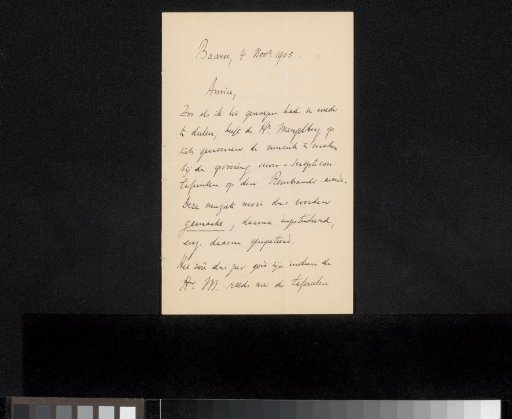 Baarn, 4 Nov. 1905.
Amice,
Zoo als ik het genoegen had u mede
te deelen, heeft de Hr. Mengelberg op
zich genomen de muziek te maken
bij de
op den Rembrandt-avond.
Deze muziek moet dus worden
gemaakt, daarna ingestudeerd,
en daarna
Het zou dus zeer goed zijn indien de
Hr. M. reeds nu de tafreelen